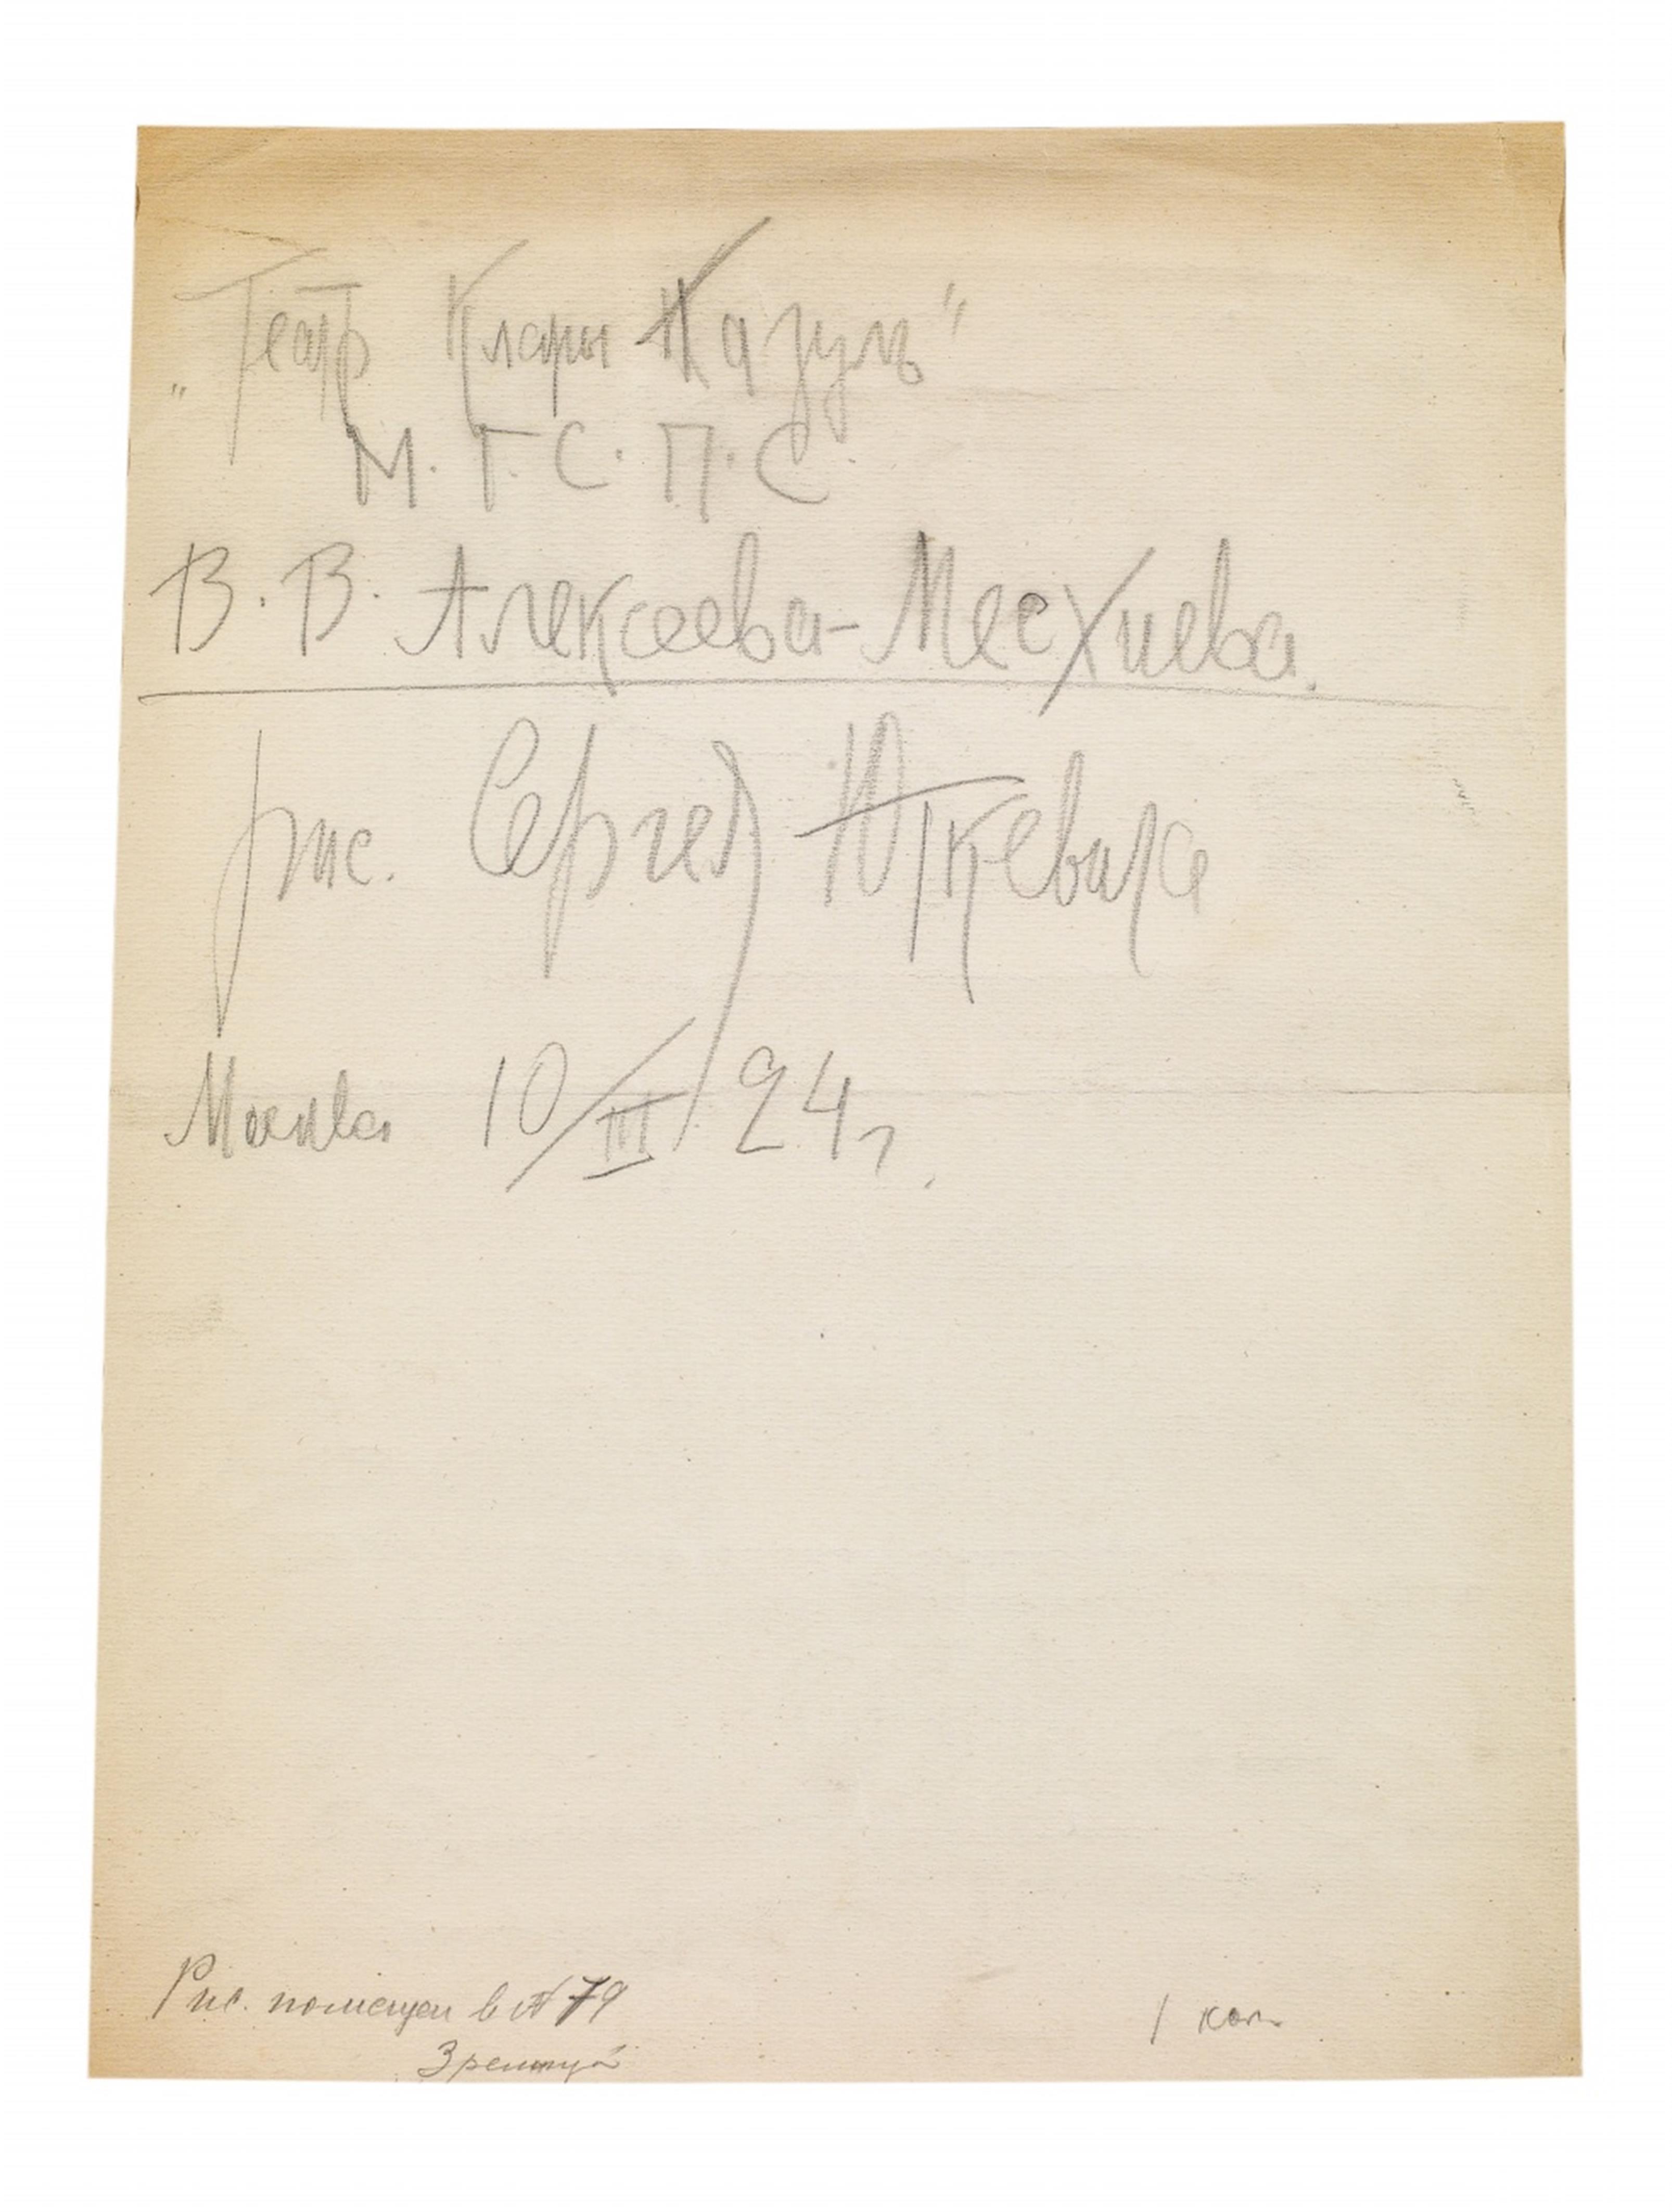 „Театр Клары Казуль"
М. Г. С. П. С.
В. В. Алексеева-Месхиева.
рис. Сергея Юткевича
Москва 10/III 24 г.
Рис. помещен в № 79
1 кол.